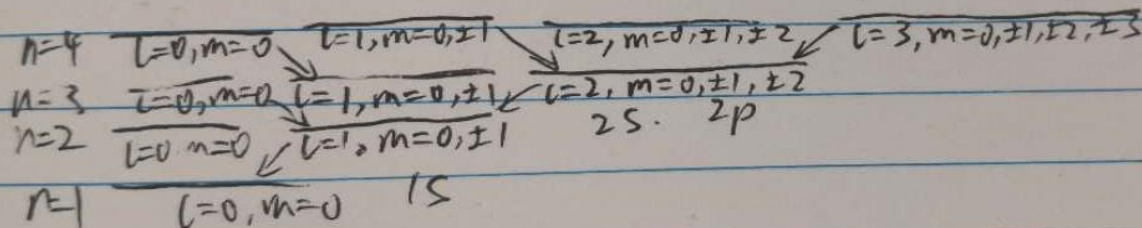 n=4 l=0, m=0 l=1, m=0,±1 l=2, m=0,±1,±2 l=3, m=0,±1,±2,±3
n=3 l=0, m=0 l=1, m=0,±1 l=2, m=0,±1,±2
n=2 l=0 m=0 l=1, m=0,±1 2S. 2p
n=1 l=0, m=0 1S